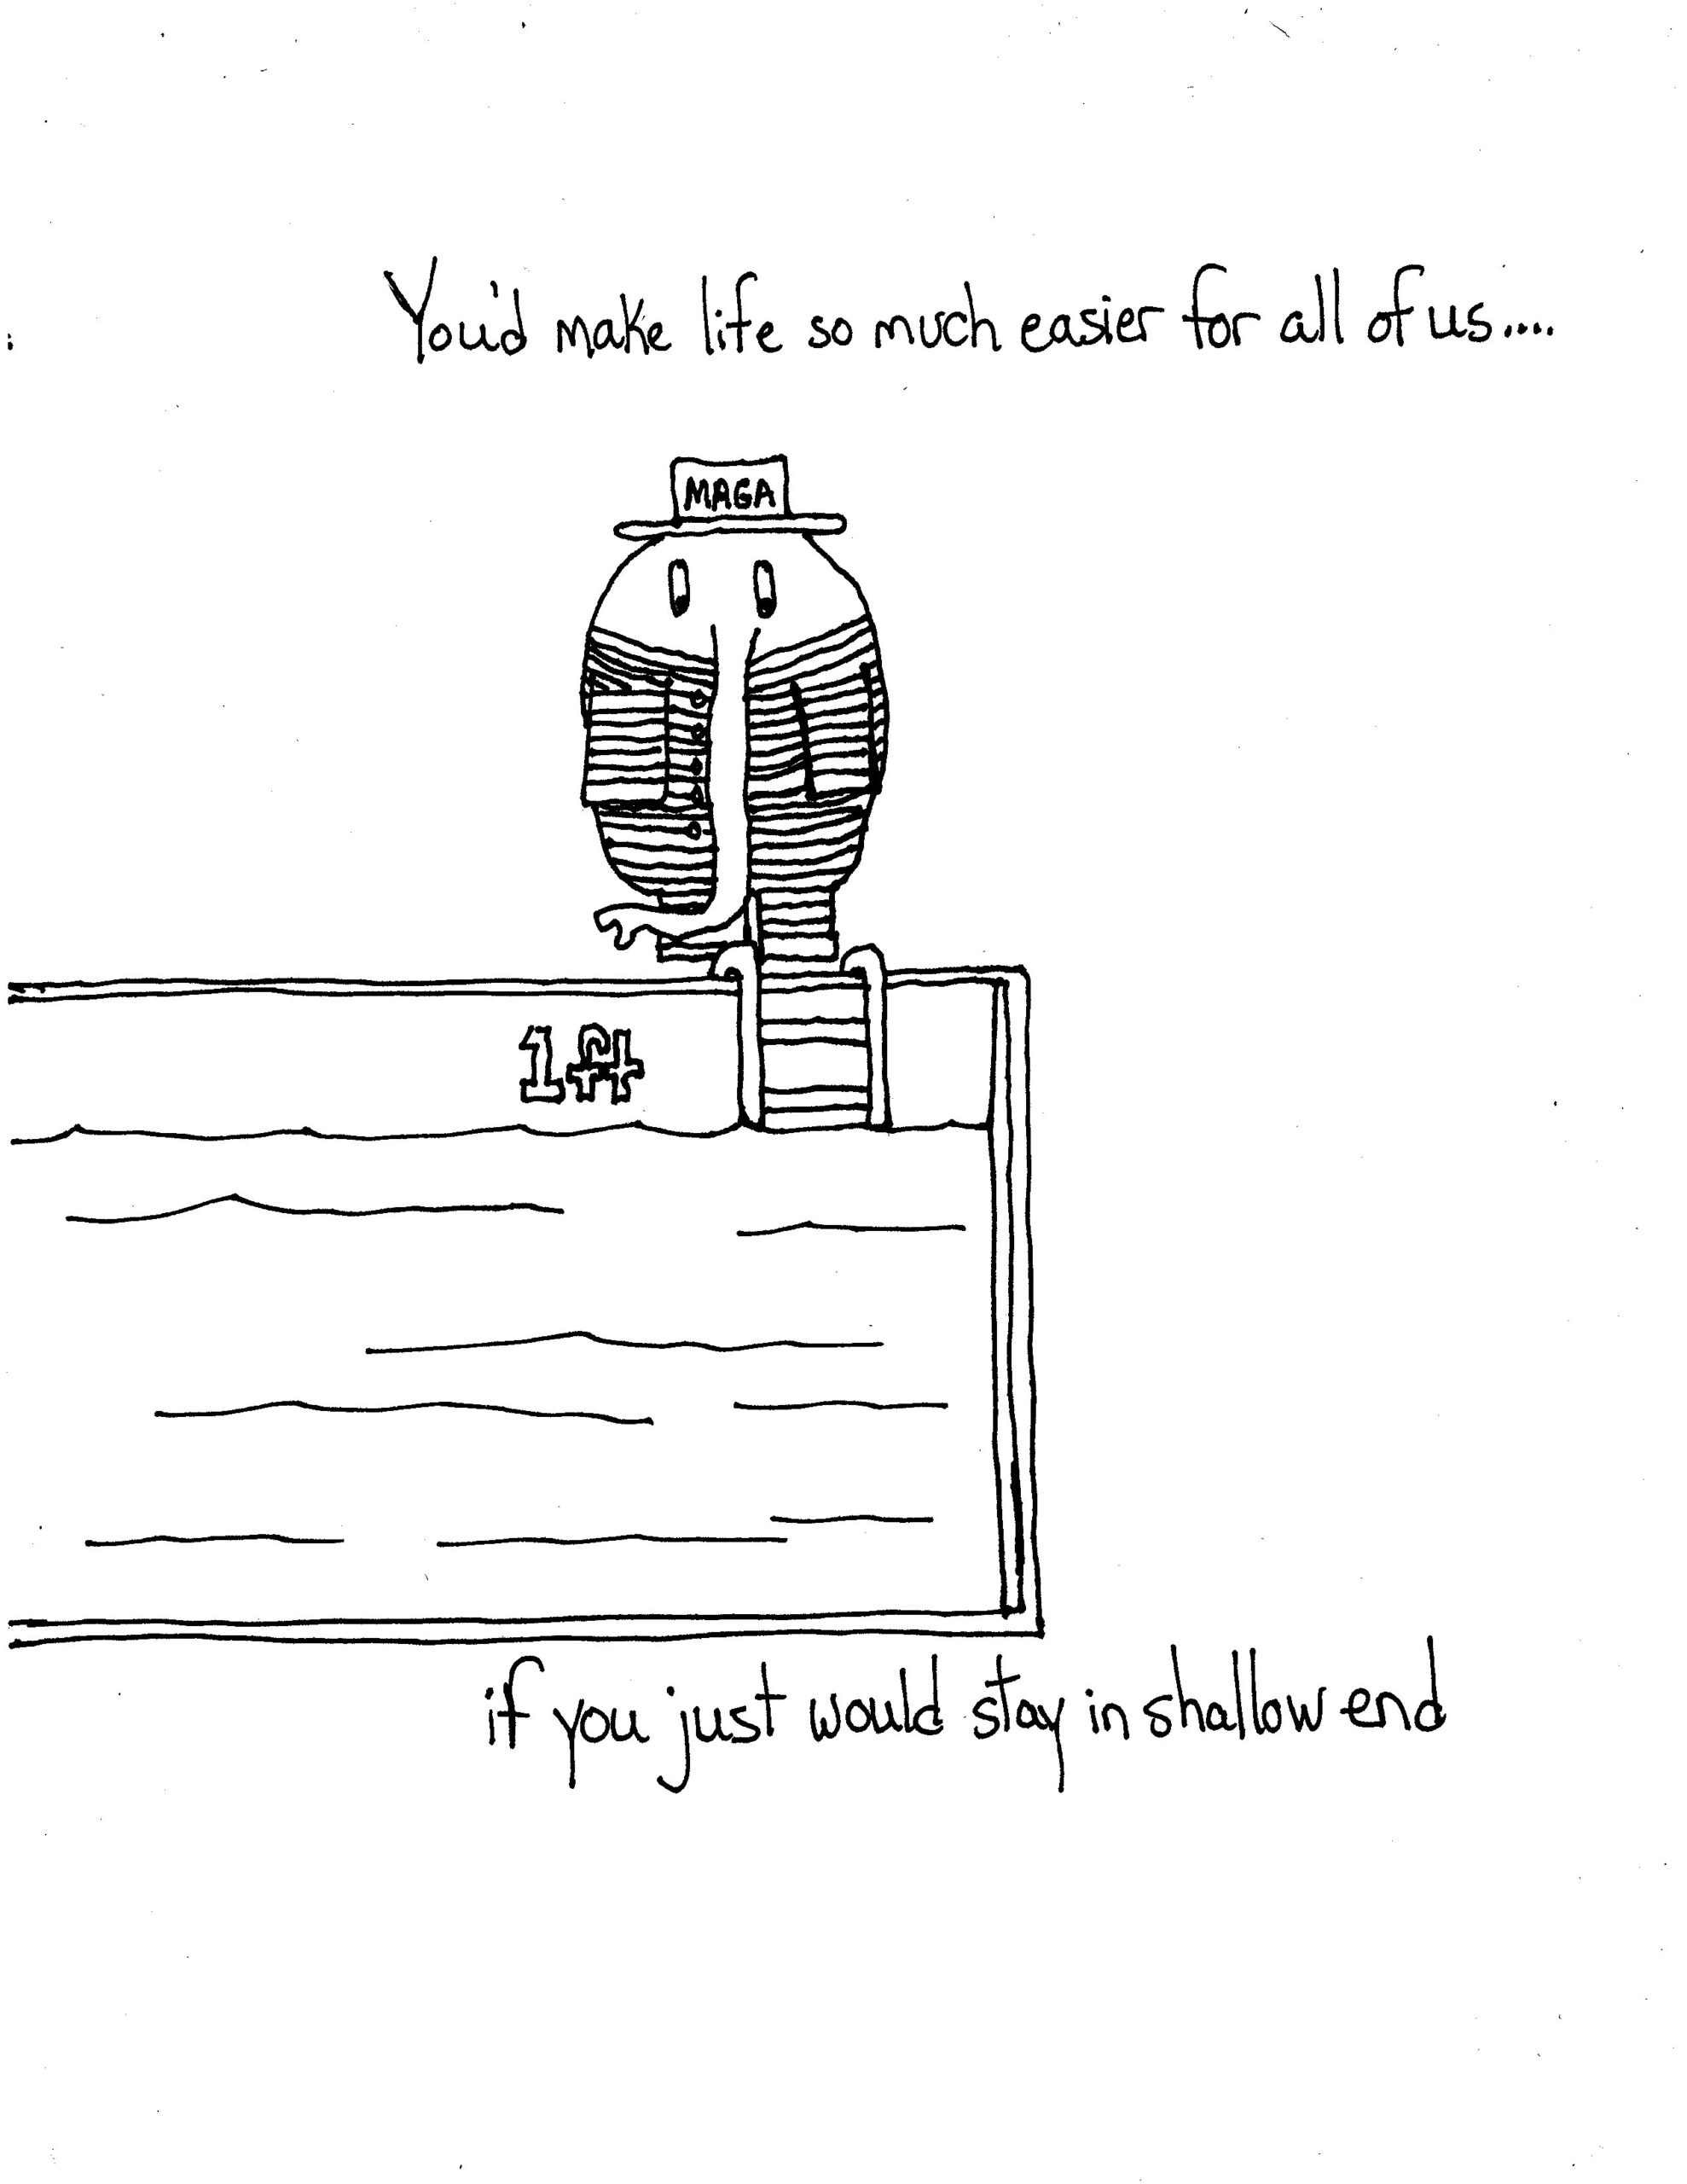 You'd make life so much easier for all of us....
MAGA
1ft
if you just would stay in shallow end